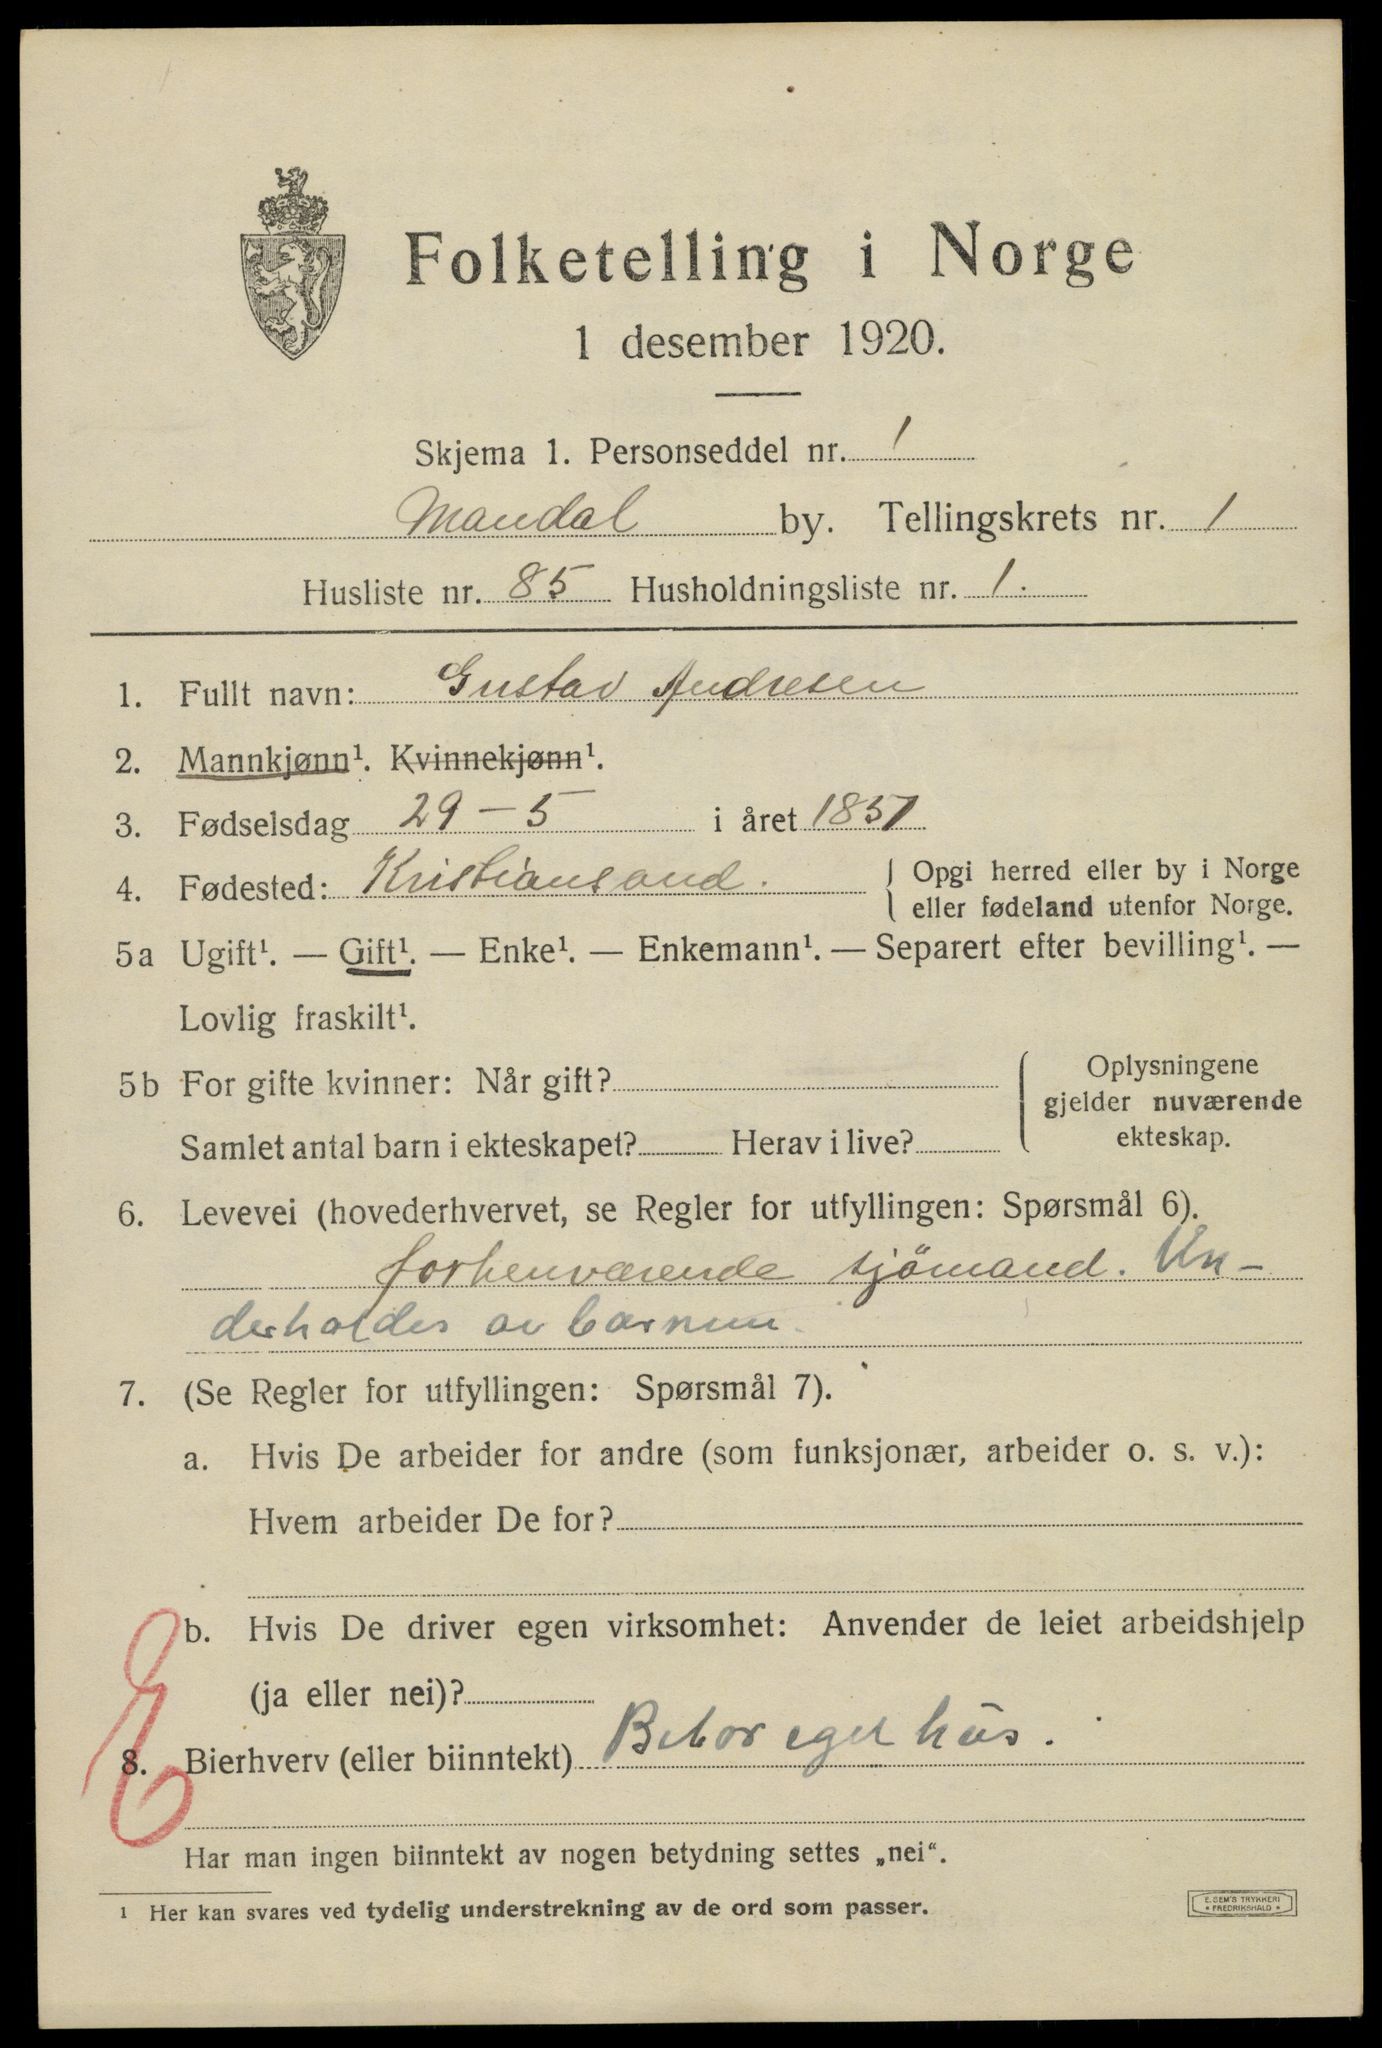 Folketelling i Norge
1 desember 1920.
Skjema 1. Personseddel nr. 1
Mandal by. Tellingskrets nr. 1
Husliste nr. 85 Husholdningsliste nr. 1.
1. Fullt navn: Gustav Andresen
2. Mannkjønn¹. Kvinnekjønn¹.
3. Fødselsdag 29 – 5 i året 1851
4. Fødested: Kristiansand. Opgi herred eller by i Norge
eller fødeland utenfor Norge.
5a Ugift¹. — Gift¹. — Enke¹. — Enkemann¹. — Separert efter bevilling¹. —
Lovlig fraskilt¹.
5b For gifte kvinner: Når gift? Oplysningene
gjelder nuværende
Samlet antal barn i ekteskapet? Herav i live? ekteskap.
6. Levevei (hovederhvervet, se Regler for utfyllingen: Spørsmål 6).
forhenværende sjömand. Un-
derholdes av barnene.
7. (Se Regler for utfyllingen: Spørsmål 7).
a. Hvis De arbeider for andre (som funksjonær, arbeider o. s. v.):
Hvem arbeider De for?
b. Hvis De driver egen virksomhet: Anvender de leiet arbeidshjelp
(ja eller nei)?
8. Bierhverv (eller biinntekt) Bebor eget hus.
Har man ingen biinntekt av nogen betydning settes „nei“.
1 Her kan svares ved tydelig understrekning av de ord som passer.
E. SEM'S TRYKKERI
• FREDRIKSHALD •